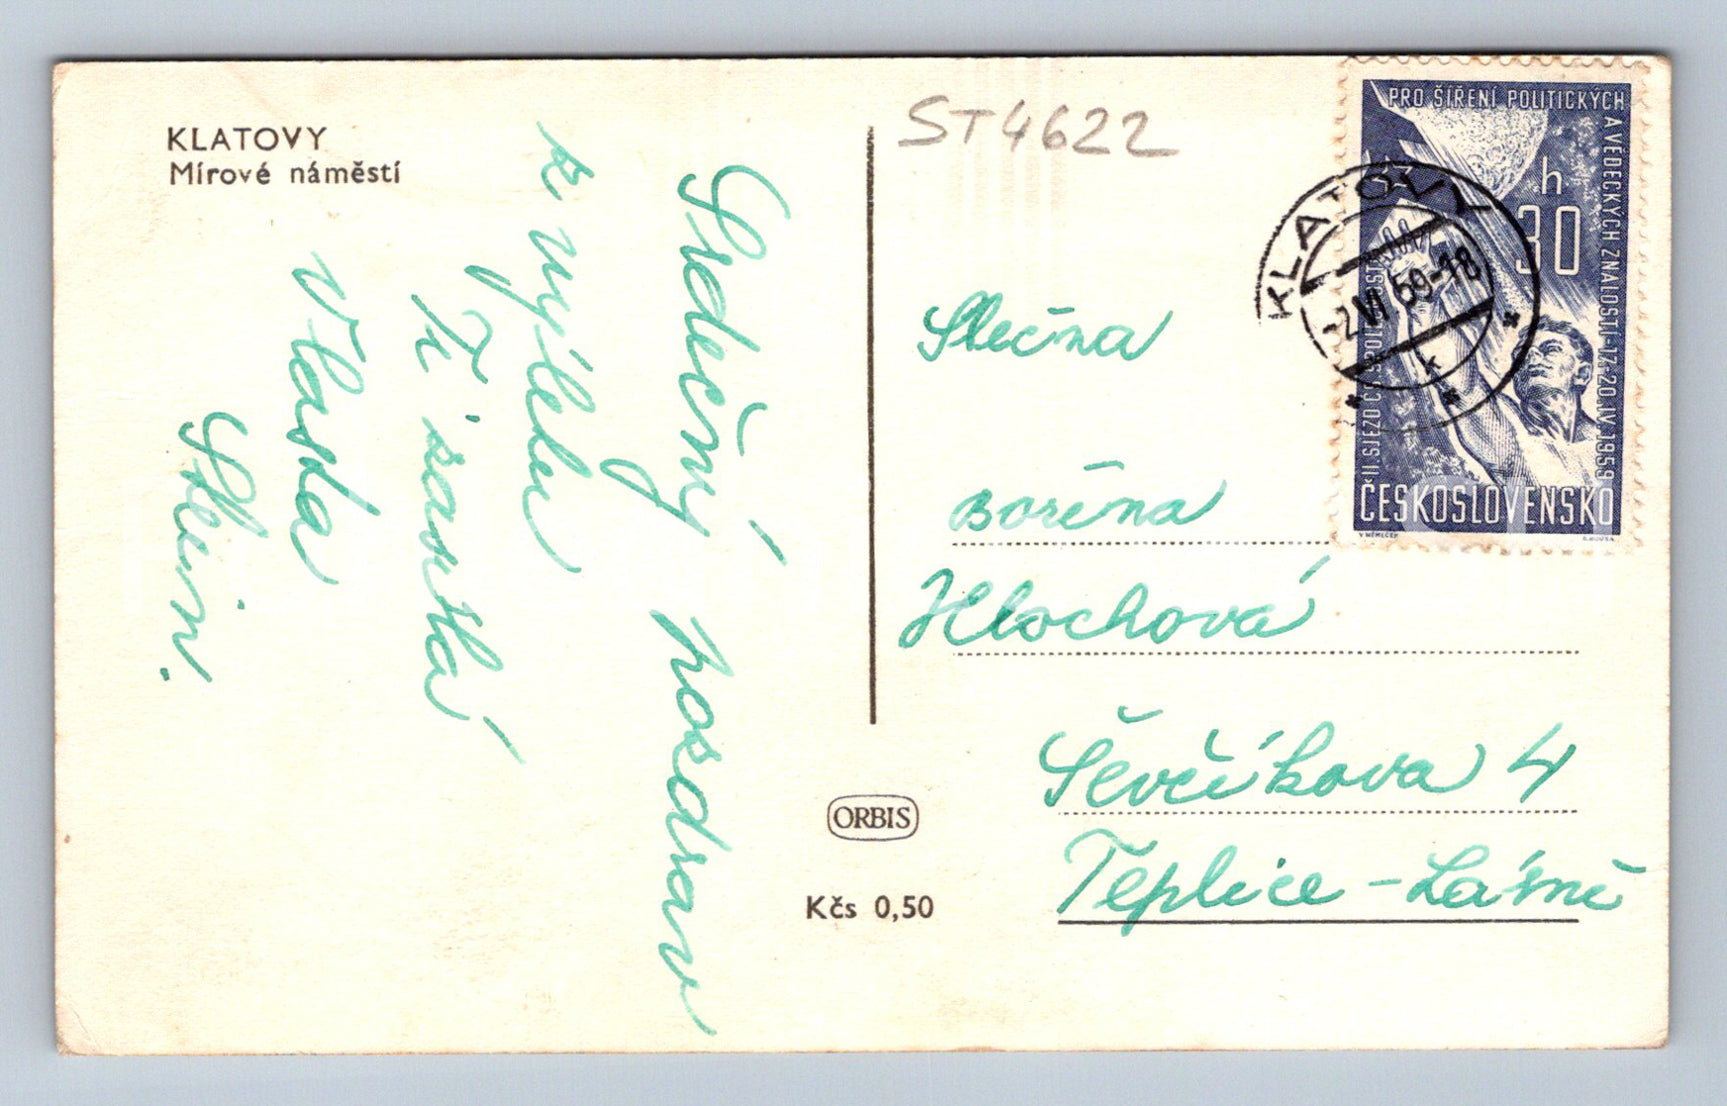 KLATOVY
Mírové náměstí
Srdečný pozdrav
z výletu
Ti zasílá
Vlasta
ST4622
Slečna
Božena
Hlochová
Ševčíkova 4
Teplice - Lázně
ORBIS
Kčs 0,50
PRO ŠÍŘENÍ POLITICKÝCH
A VĚDECKÝCH ZNALOSTÍ·17.-20.IV.1959
h
30
ČESKOSLOVENSKO
KLATOVY
-2.VI.59-18